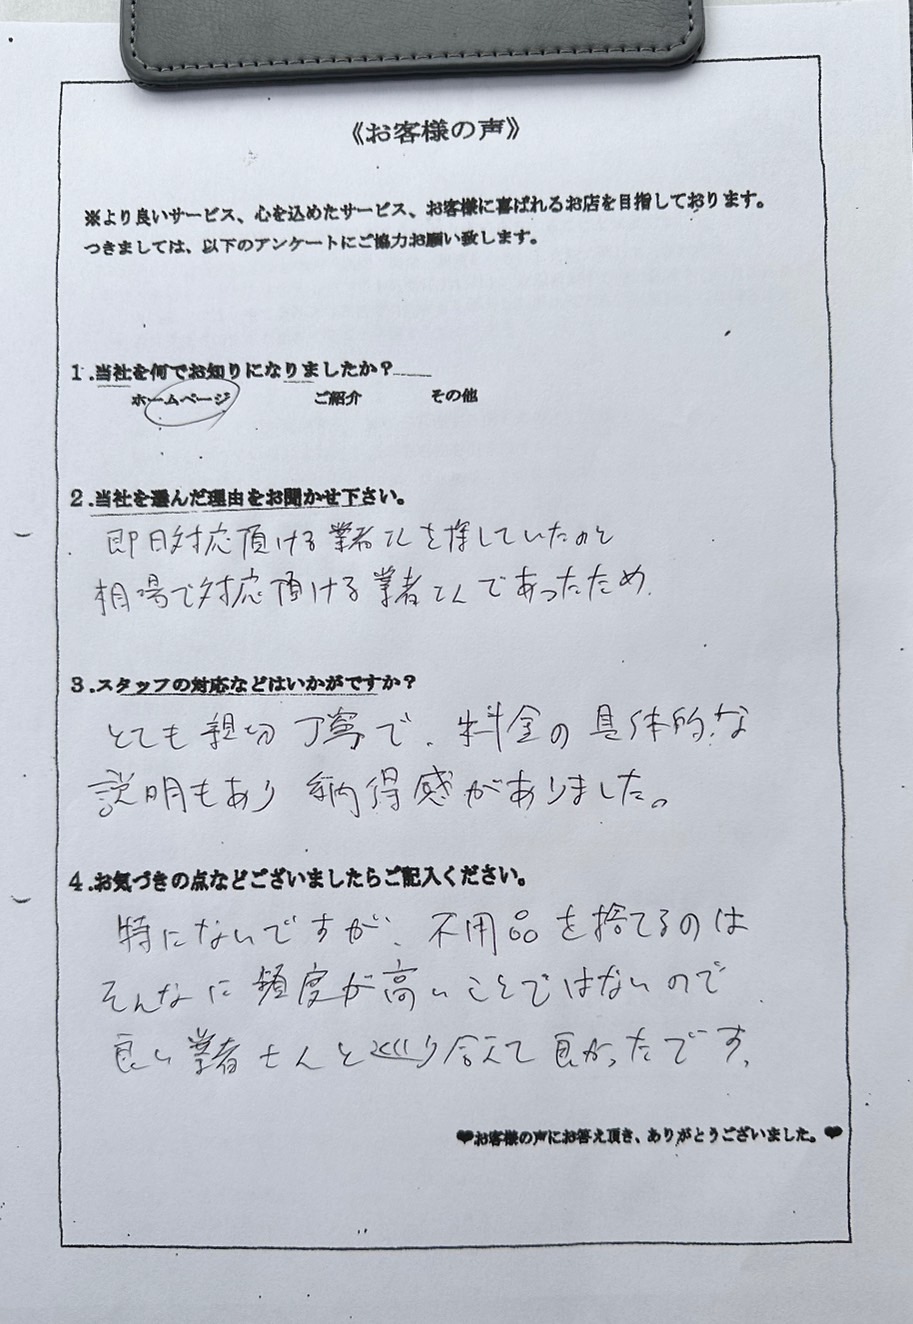 《お客様の声》
※より良いサービス、心を込めたサービス、お客様に喜ばれるお店を目指しております。
つきましては、以下のアンケートにご協力お願い致します。
1.当社を何でお知りになりましたか?
ホームページ ご紹介 その他
2.当社を選んだ理由をお聞かせ下さい。
即日対応頂ける業者さんを探していたのと
相場で対応頂ける業者さんであったため.
3.スタッフの対応などはいかがですか?
とても親切丁寧で、料金の具体的な
説明もあり 納得感がありました。
4.お気づきの点などございましたらご記入ください。
特にないですが、不用品を捨てるのは
そんなに頻度が高いことではないので、
良い業者さんと巡り合えて良かったです。
❤お客様の声にお答え頂き、ありがとうございました。❤